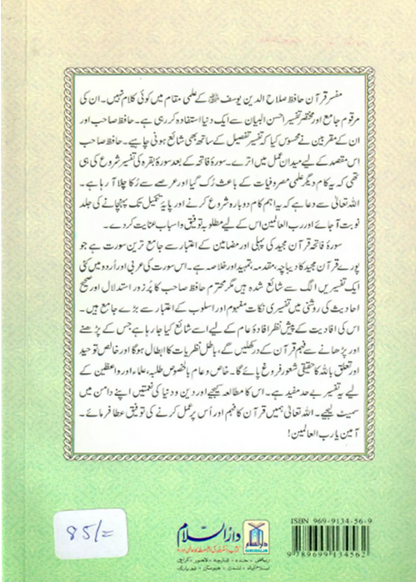 مفسر قرآن حافظ صلاح الدین یوسف ﷾ کے علمی مقام میں کوئی کلام نہیں۔ ان کی
مرقوم جامع اور مختصر تفسیر احسن البیان سے ایک دنیا استفادہ کر رہی ہے۔ حافظ صاحب اور
ان کے مقربین نے محسوس کیا کہ تفسیر تفصیل کے ساتھ بھی شائع ہونی چاہیے۔ حافظ صاحب
اس مقصد کے لیے میدان عمل میں اترے۔ سورۂ فاتحہ کے بعد سورۂ بقرہ کی تفسیر شروع کی ہی
تھی کہ یہ کام دیگر علمی مصروفیات کے باعث رُک گیا اور عرصے سے رُکا چلا آ رہا ہے۔
اللہ تعالیٰ سے دعا ہے کہ یہ اہم کام دوبارہ شروع کرنے اور پایۂ تکمیل تک پہنچانے کی جلد
نوبت آ جائے اور رب العالمین اس کے لیے مطلوبہ توفیق و اسباب عنایت کر دے۔
سورۂ فاتحہ قرآن مجید کی پہلی اور مضامین کے اعتبار سے جامع ترین سورت ہے جو
پورے قرآن مجید کا دیباچہ، مقدمہ، تمہید اور خلاصہ ہے۔ اس سورت کی عربی اور اُردو میں کئی
ایک تفسیریں الگ سے شائع شدہ ہیں مگر محترم حافظ صاحب کا پُر زور استدلال اور صحیح
احادیث کی روشنی میں تفسیری نکات مفہوم اور اسلوب کے اعتبار سے بڑے جامع ہیں۔
اس کی افادیت کے پیش نظر افادۂ عام کے لیے اسے شائع کیا جا رہا ہے جس کے پڑھنے
اور پڑھانے سے فہم قرآن کے در کھلیں گے، باطل نظریات کا ابطال ہوگا اور خالص توحید
اور تعلق باللہ کا حقیقی شعور فروغ پائے گا۔ خاص و عام بالخصوص طلبہ، علماء اور واعظین کے
لیے یہ تفسیر بے حد مفید ہے۔ اس کا مطالعہ کیجیے اور دین و دنیا کی نعمتیں اپنے دامن میں
سمیٹ لیجیے۔ اللہ تعالیٰ ہمیں قرآن کا فہم اور اُس پر عمل کرنے کی توفیق عطا فرمائے۔
آمین یا رب العالمین!
85/=
دارالسلام
ISBN 969-9134-56-9
9 789699 134562